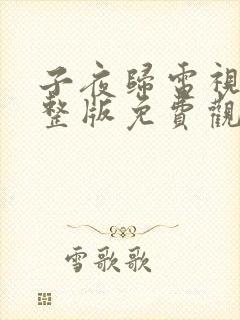 子夜歸電視
整版免費觀
雪歌歌